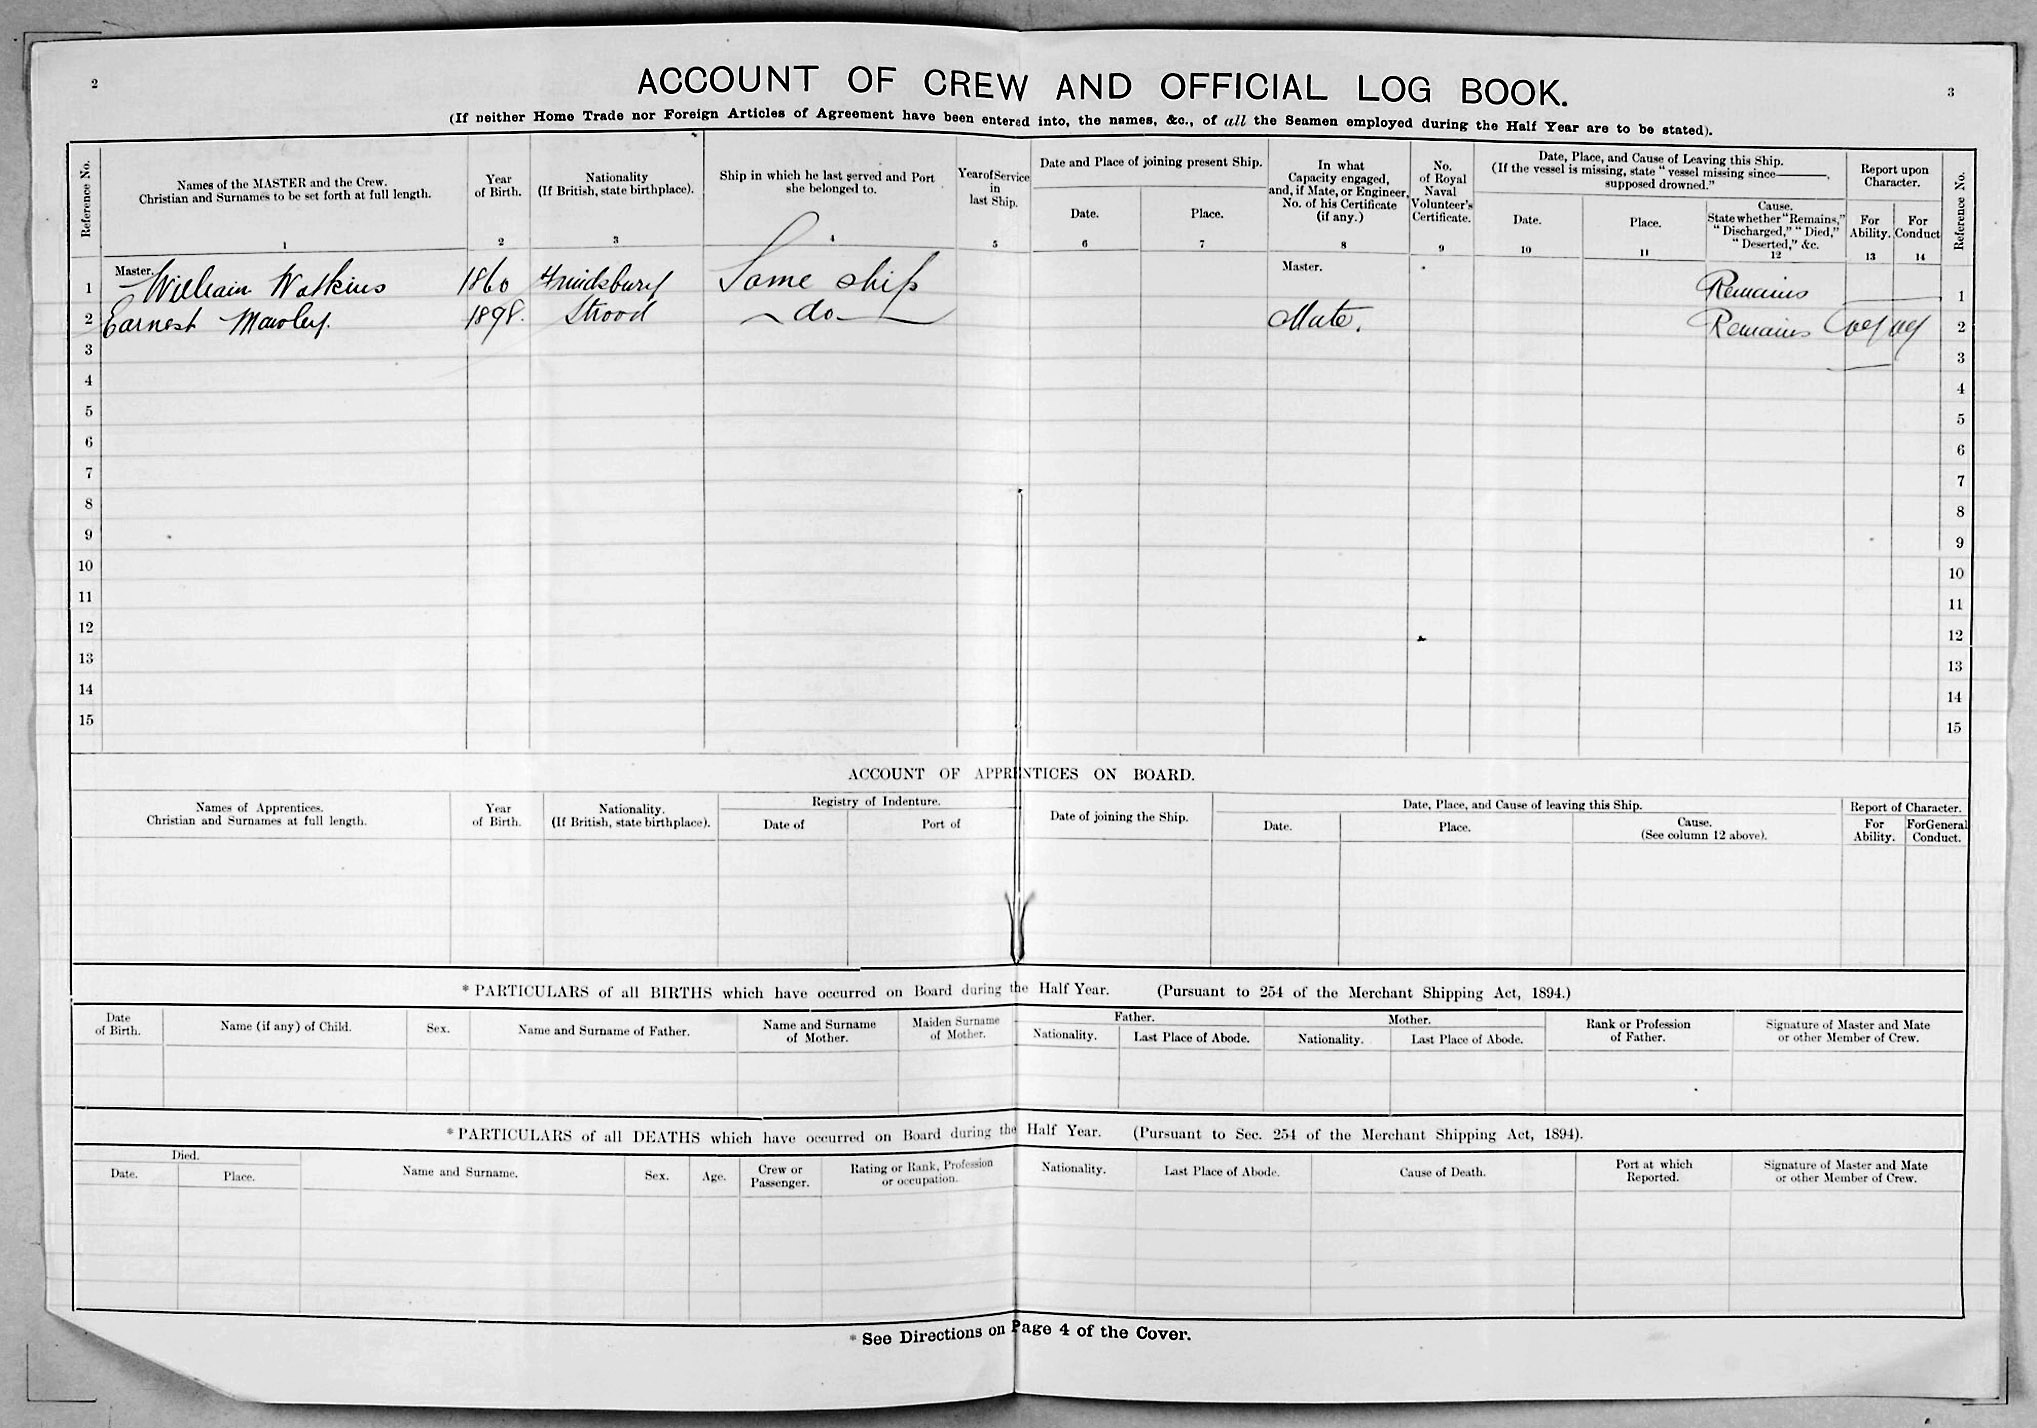 2
3
ACCOUNT OF CREW AND OFFICIAL LOG BOOK.
(If neither Home Trade nor Foreign Articles of Agreement have been entered into, the names, &c., of all the Seamen employed during the Half Year are to be stated).
Reference No.
Names of the MASTER and the Crew.
Christian and Surnames to be set forth at full length.
1
Year
of Birth.
2
Nationality
(If British, state birthplace).
3
Ship in which he last served and Port
she belonged to.
4
Year of Service
in
last Ship.
5
Date and Place of joining present Ship.
Date.
6
Place.
7
In what
Capacity engaged,
and, if Mate, or Engineer,
No. of his Certificate
(if any.)
8
No.
of Royal
Naval
Volunteer's
Certificate.
9
Date, Place, and Cause of Leaving this Ship.
(If the vessel is missing, state "vessel missing since———,
supposed drowned."
Date.
10
Place.
11
Cause.
State whether "Remains,"
"Discharged," "Died,"
"Deserted," &c.
12
Report upon
Character.
For
Ability.
13
For
Conduct
14
Reference No.
1 Master. William Watkins 1860 Frindsbury Same ship Master. Remains 1
2 Earnest Mawley. 1898. Strood do Mate. Remains 2
3 3
4 4
5 5
6 6
7 7
8 8
9 9
10 10
11 11
12 12
13 13
14 14
15 15
ACCOUNT OF APPRENTICES ON BOARD.
Names of Apprentices.
Christian and Surnames at full length.
Year
of Birth.
Nationality.
(If British, state birthplace).
Registry of Indenture.
Date of
Port of
Date of joining the Ship.
Date, Place, and Cause of leaving this Ship.
Date.
Place.
Cause.
(See column 12 above).
Report of Character.
For
Ability.
For General
Conduct.
* PARTICULARS of all BIRTHS which have occurred on Board during the Half Year. (Pursuant to 254 of the Merchant Shipping Act, 1894.)
Date
of Birth.
Name (if any) of Child.
Sex.
Name and Surname of Father.
Name and Surname
of Mother.
Maiden Surname
of Mother.
Father.
Nationality.
Last Place of Abode.
Mother.
Nationality.
Last Place of Abode.
Rank or Profession
of Father.
Signature of Master and Mate
or other Member of Crew.
* PARTICULARS of all DEATHS which have occurred on Board during the Half Year. (Pursuant to Sec. 254 of the Merchant Shipping Act, 1894).
Died.
Date.
Place.
Name and Surname.
Sex.
Age.
Crew or
Passenger.
Rating or Rank, Profession
or occupation.
Nationality.
Last Place of Abode.
Cause of Death.
Port at which
Reported.
Signature of Master and Mate
or other Member of Crew.
* See Directions on Page 4 of the Cover.